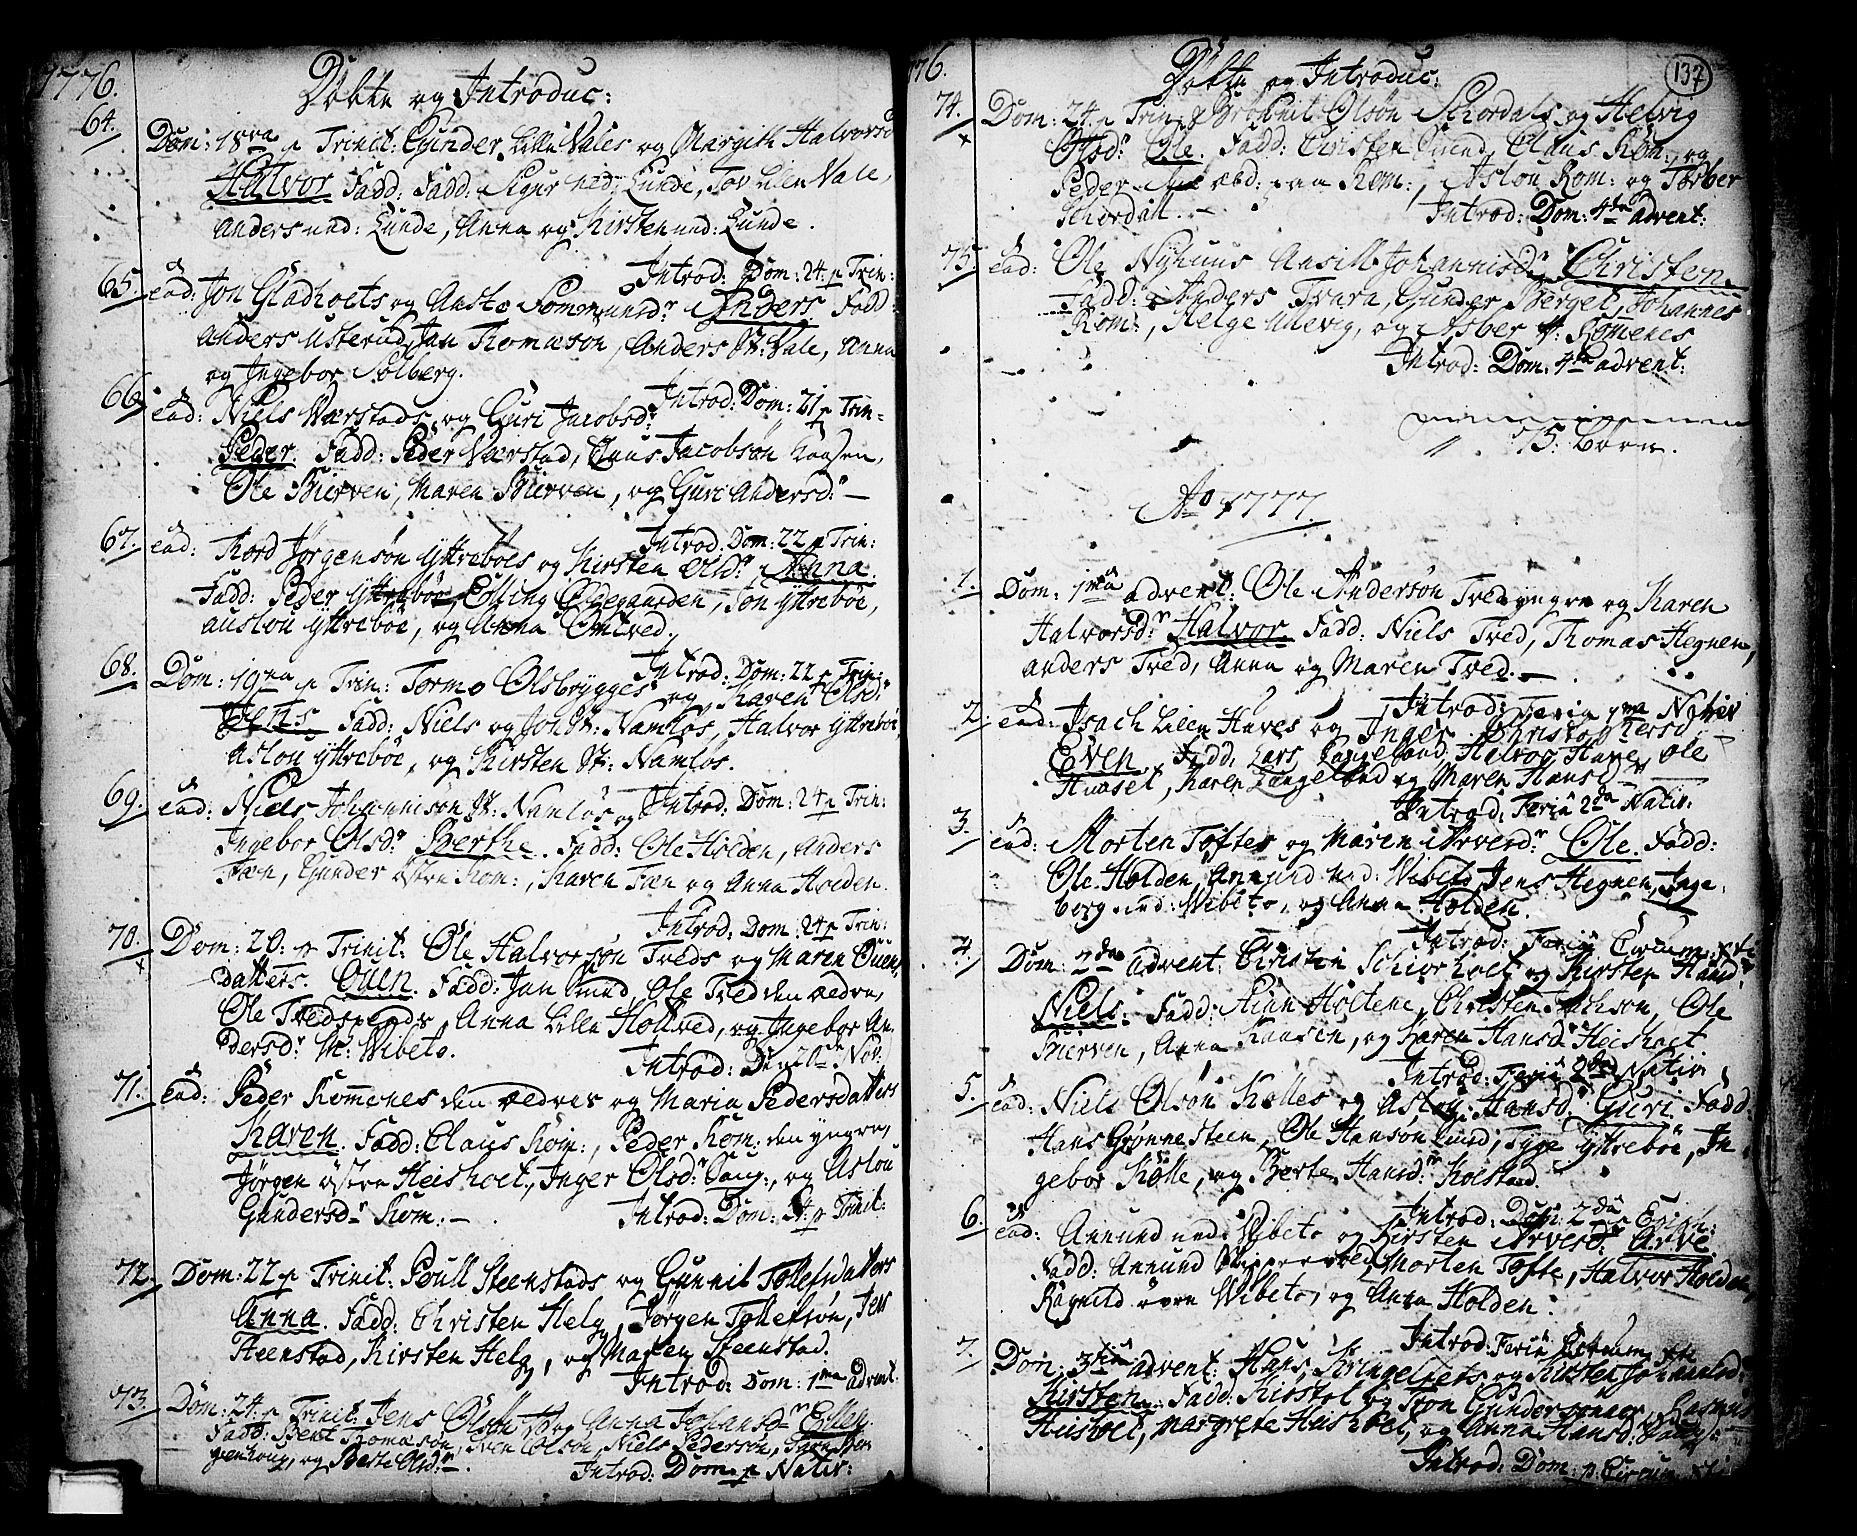 1776.
Döbte og Introduc:
64. Dom: 18va p Trinit: Gunder Lille Vales og Margith Halvorsd
Halvor. Fadd: Fadd: Sigur ned: Lunde, Tov Lilen Vale,
Anders ned: Lunde, Anna og Kirsten ned: Lunde.
Introd: Dom: 24. p Trin:
65. ead: Jon Gladhoets og Aaste Sommunsdr Anders. Fadd:
Anders Usterud, Jan Thomason, Anders St: Vale, Anna
og Ingebor Solberg.
Introd: Dom: 21 p Trin-
66. ead: Niels Værstads og Guri Jacobsdr
Peder. Fadd: Peder Værstad, Claus Jacobsøn Kaasen,
Ole Bierven, Maren Bierven, og Guri Andersdr —
Introd: Dom: 22 p Trin:
67. ead: Thord Jørgensøn Yttreböes og Kirsten Olsdr Anna.
Fadd: Peder Yttreböe, Elling Oldegaarden, Jon Yttreböe,
Aaslou Yttreböe, og Anna Omtved.
Introd: Dom: 22 p Trin:
68. Dom: 19na p Trin: Tormo Olsbrygges og Karen Olsdr
Jens. Fadd: Niels og Jon St: Namlos, Halvor Yttreböe,
Aslou Yttreböe, og Kirsten St: Namlos.
Introd: Dom: 24 p Trin:
69. ead: Niels Johannisøn St: Namlos og
Ingebor Olsdr Berthe. Fadd: Ole Holden, Anders
Træn, Gunder östre Rom:, Karen Træn og Anna Holden.
Introd: Dom: 24 p Trin:
70. Dom: 20: p Trinit: Ole Halvorsøn Treds og Maren Ouens
datters. Ouen. Fadd: Jan Lund, Ole Tred den ædre,
Ole Tveds, Anna Lille Holtved, og Ingebor An-
dersdr N: Wibeto.
Introd: Den 20de Nov:
71. ead: Peder Rommenes den ædres og Maria Pedersdatters
Karen. Fadd: Claus Rom:, Peder Rom: den yngre,
Jørgen östre Heishoet, Inger Olsdr Saug:, og Aslou
Gundersdr Rom: —
Introd: Dom: 24. p Trinit:
72. Dom: 22 p Trinit: Poull Steenstads og Gunnil Tollefsdatters
Anna. Fadd: Christen Helg, Jørgen Tollefsøn, Jens
Steenstad, Kirsten Helg, og Maren Steenstad.
Introd: Dom: 1ma Advent.
73. Dom: 24. p Trinit: Jens Olsøn og Anna Johansdr Ellen.
Fadd: Bent Thomasøn, Sven Olsøn, Niels Pedersøn,
og Berte Olsdr —
Introd: Dom: p Nativ:
76. Döbte og Introduc: 137
74. Dom: 24. p Trin: Olsøn Schordals og Helvig
Olsdr Ole. Fadd: Christen Lund, Claus Rom:, og
Peder Rom:, Aslou Rom: og Torber
Schordall. —
Introd: Dom: 4ta advent:
75. ead: Ole Nyhuus Ansill Johannisdr Christen.
Fadd: Anders Tvara, Gunder Berget, Johannes
Rom:, Helge Ullevig, og Asber Romenes
Introd: Dom: 4ta advent:
75. Börn.
Ao 1777.
1. Dom: 1ma advent: Ole Andersøn Tred yngre og Karen
Halvorsdr Halvor. Fadd: Niels Tred, Thomas Hegnen,
Anders Tred, Anna og Maren Tred. —
Introd: Feria 1ma Nativ
2. ead: Isach Lilen Haves og Inger Christophersd
Even. Fadd: Lars Langeland, Halvor Have, Ole
Huuset, Karen Langeland og Maren Hansd
Introd: Feria 2da Nativ:
3. ead: Morten Toftes og Maren Arvesdr Ole. Fadd:
Ole Holden, Annund ned: Wibeto, Jens Hegnen, Inge-
borg ned: Wibeto, og Anna Holden.
Introd: Feria Circum: Xti
4. Dom: 2da advent: Christen Schiørhoet og Kirsten Hansd
Niels. Fadd: Finn Holtene, Christen Isachsøn, Ole
Bierven, Anna Kaasen, og Karen Hansdr Heishoet
Introd: Feria 2da Nativ:
5. ead: Niels Olsøn Kolles og Aslou Hansdr Guri. Fadd:
Hans Grönnesteen, Ole Hansøn Lund, Tyge Yttreböe, In-
gebor Kolle, og Berte Hansdr Kolstad.
Introd: Dom: 2da p Epiph:
6. ead: Annund ned: Wibeto og Kirsten Arvesdr Arve.
Fadd: Annund, Morten Tofte, Halvor Holden,
Ragnild övre Wibeto, og Anna Holden.
Introd: Feria Circum: Xti
7. Dom: 3tia advent: Hans Kringelhets og Kirsten Johannisdr
Kirsten. Fadd: Kirstol og Jon Gundersønner, Rasmus
Hushoet, Margrete Heishoet, og Anna Hansd: Saug:
Introd: Dom: p: Circum: Xti